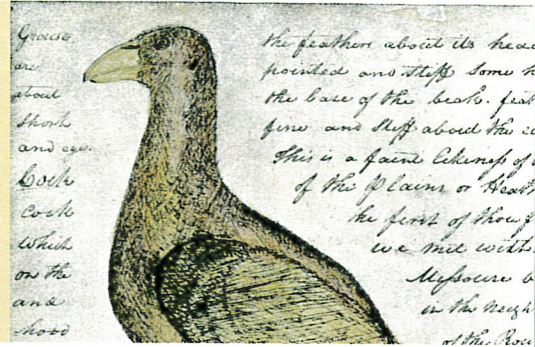 Grouse
are
about
short
and eye.
Cock
cock
which
on the
and
-hood
the feathers about its head
pointed and stiff some h
the base of the beak. feat
fine and stiff about the
This is a faint likeness of
of the Plains or Heath
he first of those f
we met with
Missouri b
in the neigh
of the Roc